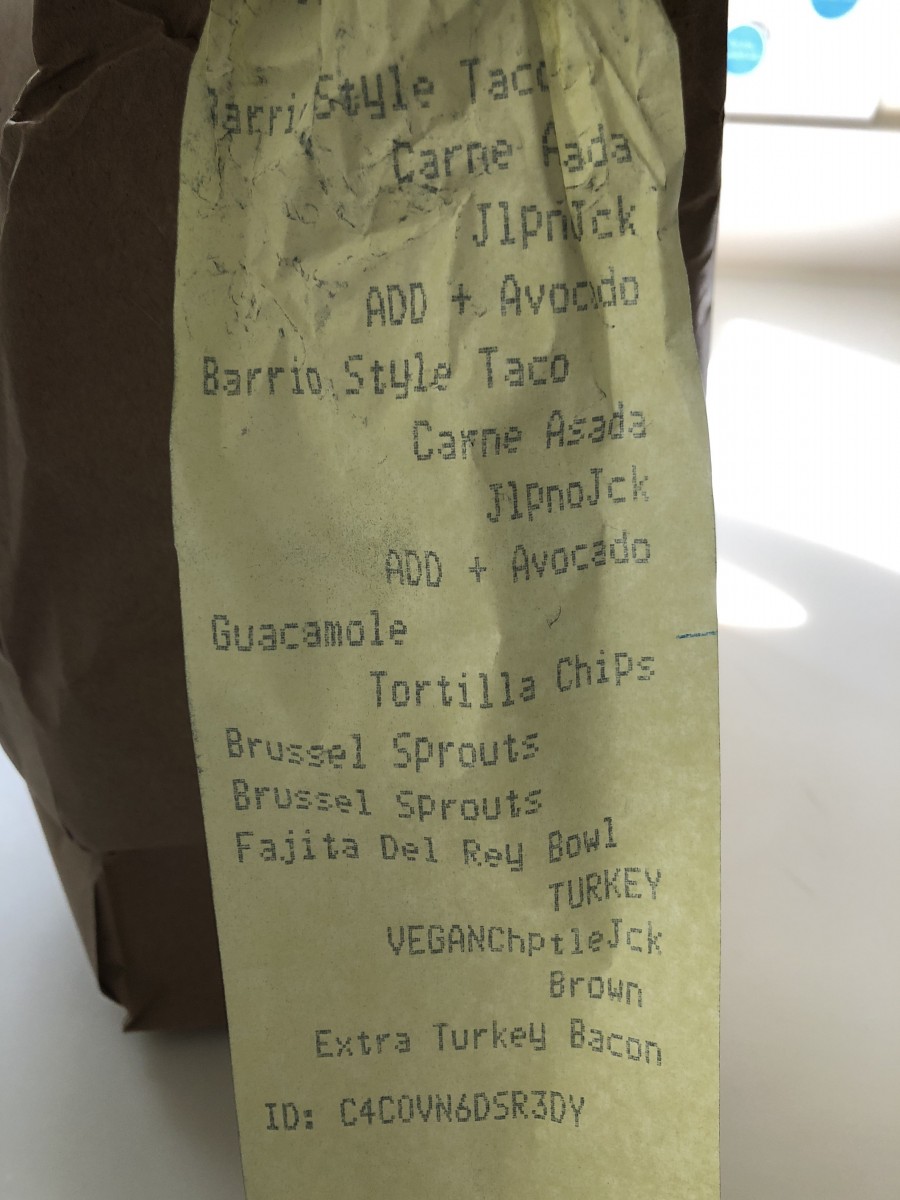 Barri Style Taco
Carne Aada
JlpnJck
ADD + Avocado
Barrio Style Taco
Carne Asada
JlpnoJck
ADD + Avocado
Guacamole
Tortilla Chips
Brussel Sprouts
Brussel Sprouts
Fajita Del Rey Bowl
TURKEY
VEGANChptleJck
Brown
Extra Turkey Bacon
ID: C4C0VN6DSR3DY